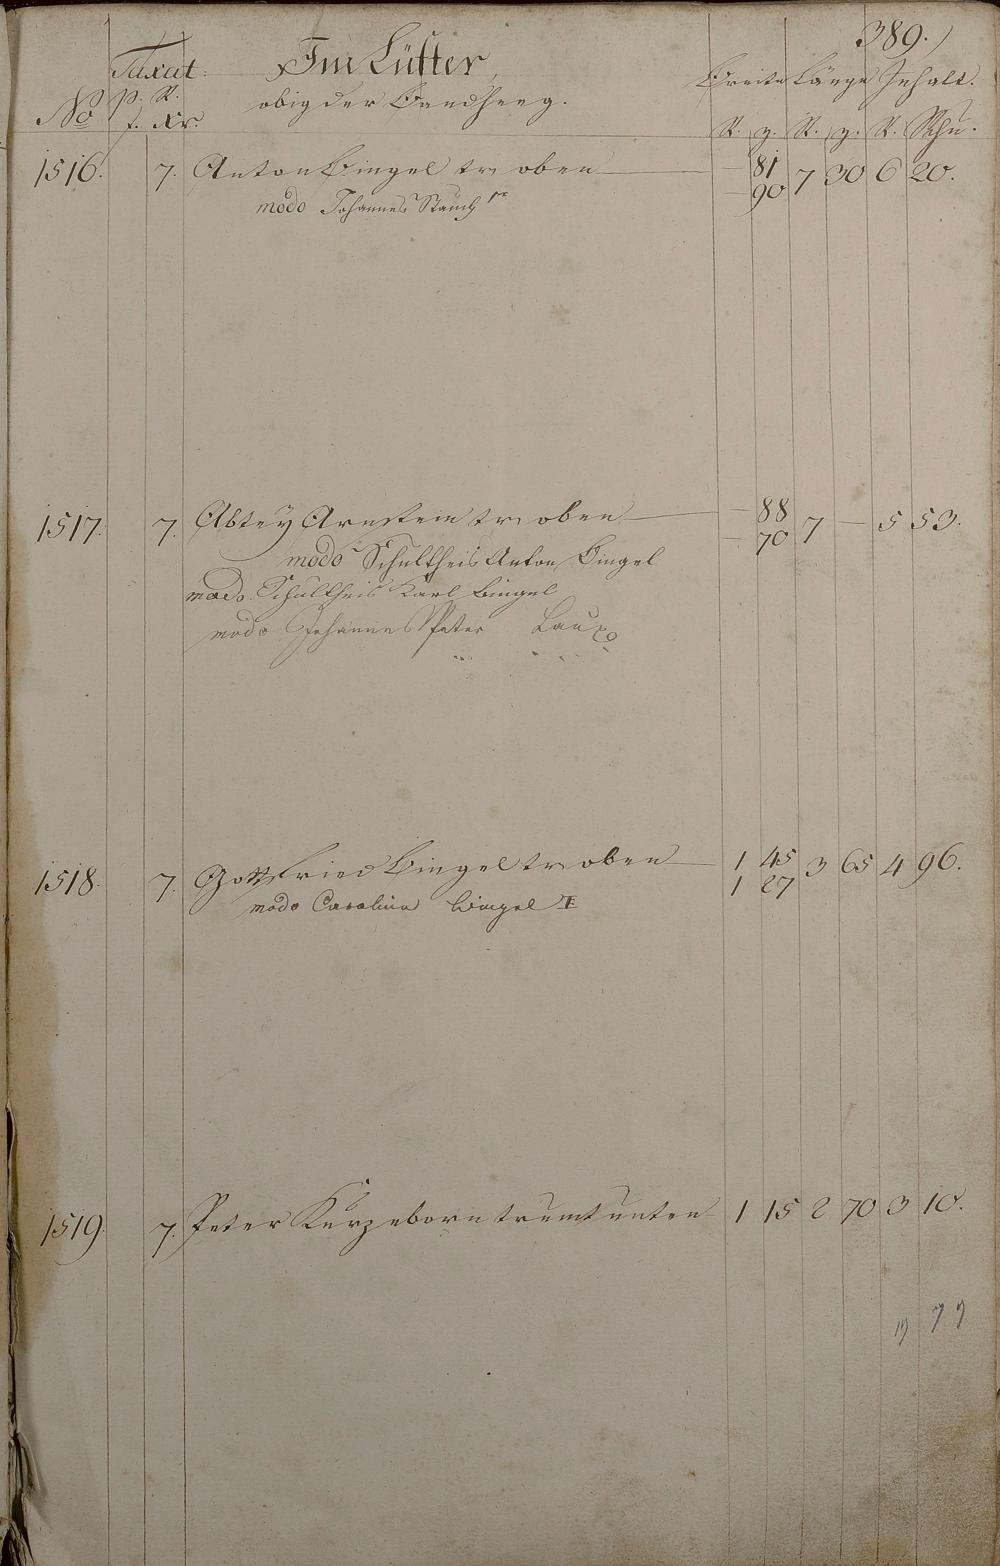 389.
Taxat. Im Lüster,
Breite Länge Inhalt.
No p. R. obig der
f. Xr. R. z. R. z. R. Schu.
1516. 7. Anton Bingel tr. oben — 81 7 30 6 20.
— 90
modo Johannes Stauch
1517. 7. Abtey Arnstein tr. oben — 88 7 — 5 53.
— 70
modo Schultheis Anton Bingel
modo Schultheis Karl Bingel
modo Johannes Peter Laux
1518. 7. Gottfried Bingel tr. oben 1 45 3 65 4 96.
1 27
modo Carolina Bingel II
1519. 7. Peter Kurzeborn trumt unten 1 15 2 70 3 10.
19 79